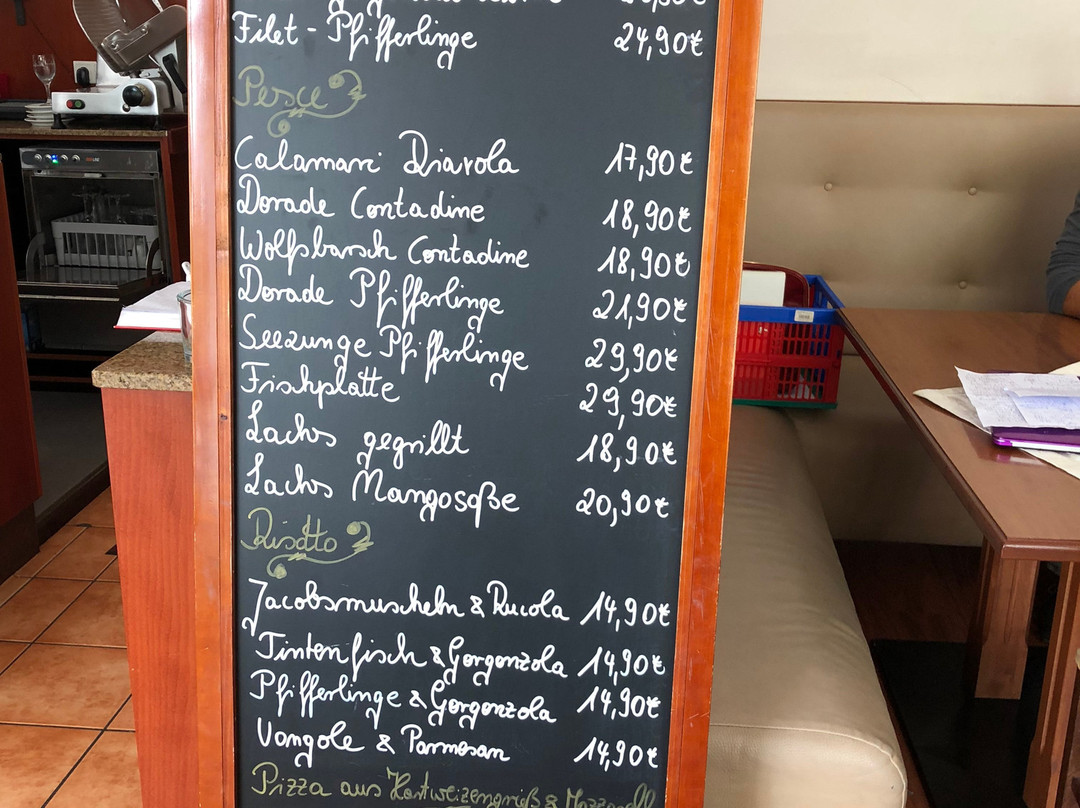 Filet - Pfifferlinge 24,90€
Pesce
Calamari Diavola 17,90€
Dorade Contadine 18,90€
Wolfsbarsch Contadine 18,90€
Dorade Pfifferlinge 21,90€
Seezunge Pfifferlinge 29,90€
Fischplatte 29,90€
Lachs gegrillt 18,90€
Lachs Mangosoße 20,90€
Risotto
Jacobsmuscheln & Rucola 14,90€
Tintenfisch & Gorgonzola 14,90€
Pfifferlinge & Gorgonzola 14,90€
Vongole & Parmesan 14,90€
Pizza aus Hartweizengrieß &